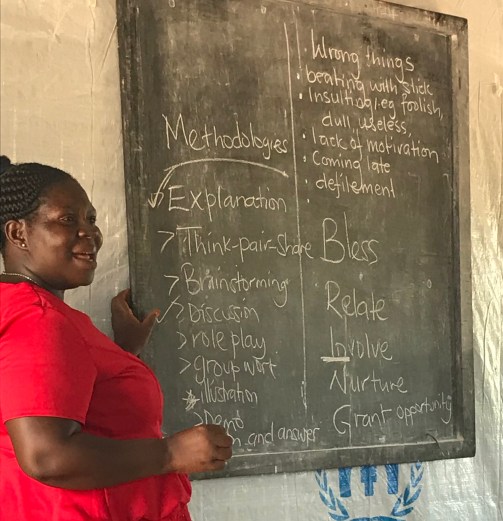 Methodologies
Explanation
Think-pair-share
Brainstorming
Discussion
role play
group work
illustration
Demo
and answer
Wrong things
beating with stick
Insulting e.g foolish,
dull, useless,
lack of motivation
Coming late
defilement
Bless
Relate
Involve
Nurture
Grant opportunity